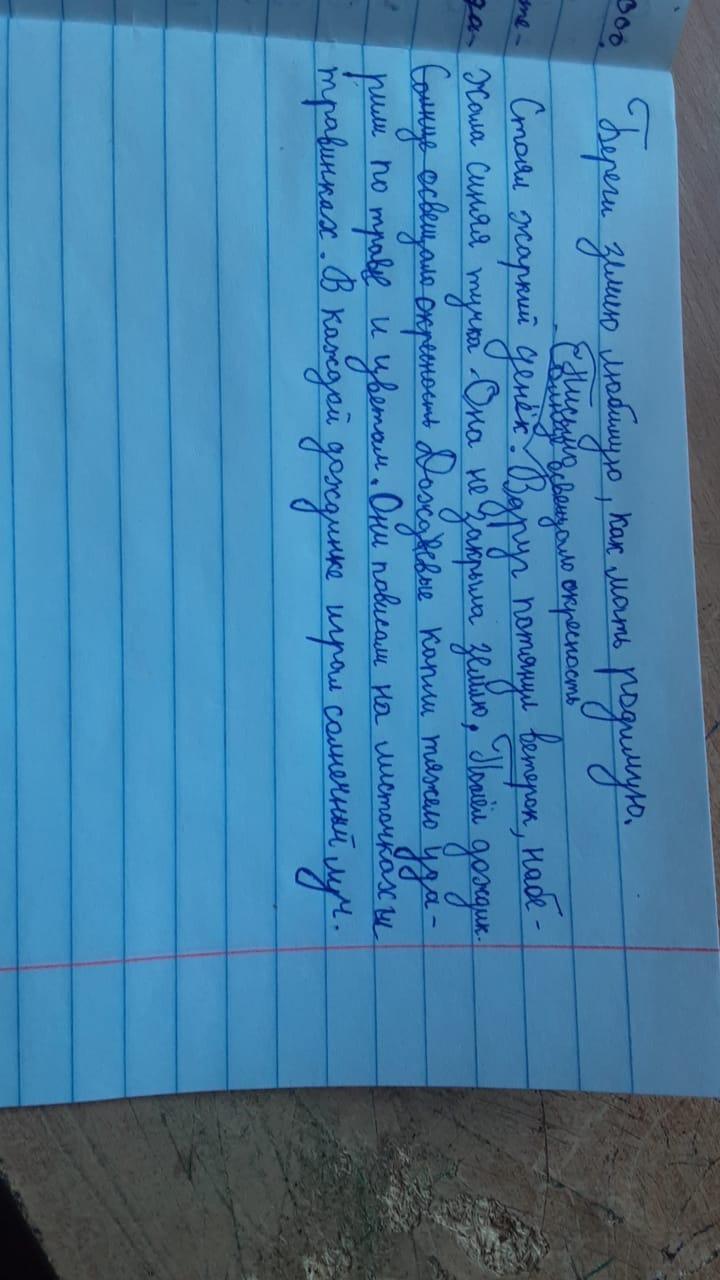 вог.
те-
да-
Береги землю любимую, как мать родимую.
Письмо
Солнце освещало окресность
Стоял жаркий денёк. Вдруг потянул ветерок, набе-
жала синяя тучка. Она не закрыла землю, Пошёл дождик.
Солнце освещало окресность Дождевые капли тяжело уда-
рили по траве и цветам. Они повисли на листочках и
травинках. В каждой дождинке играл солнечный луч.